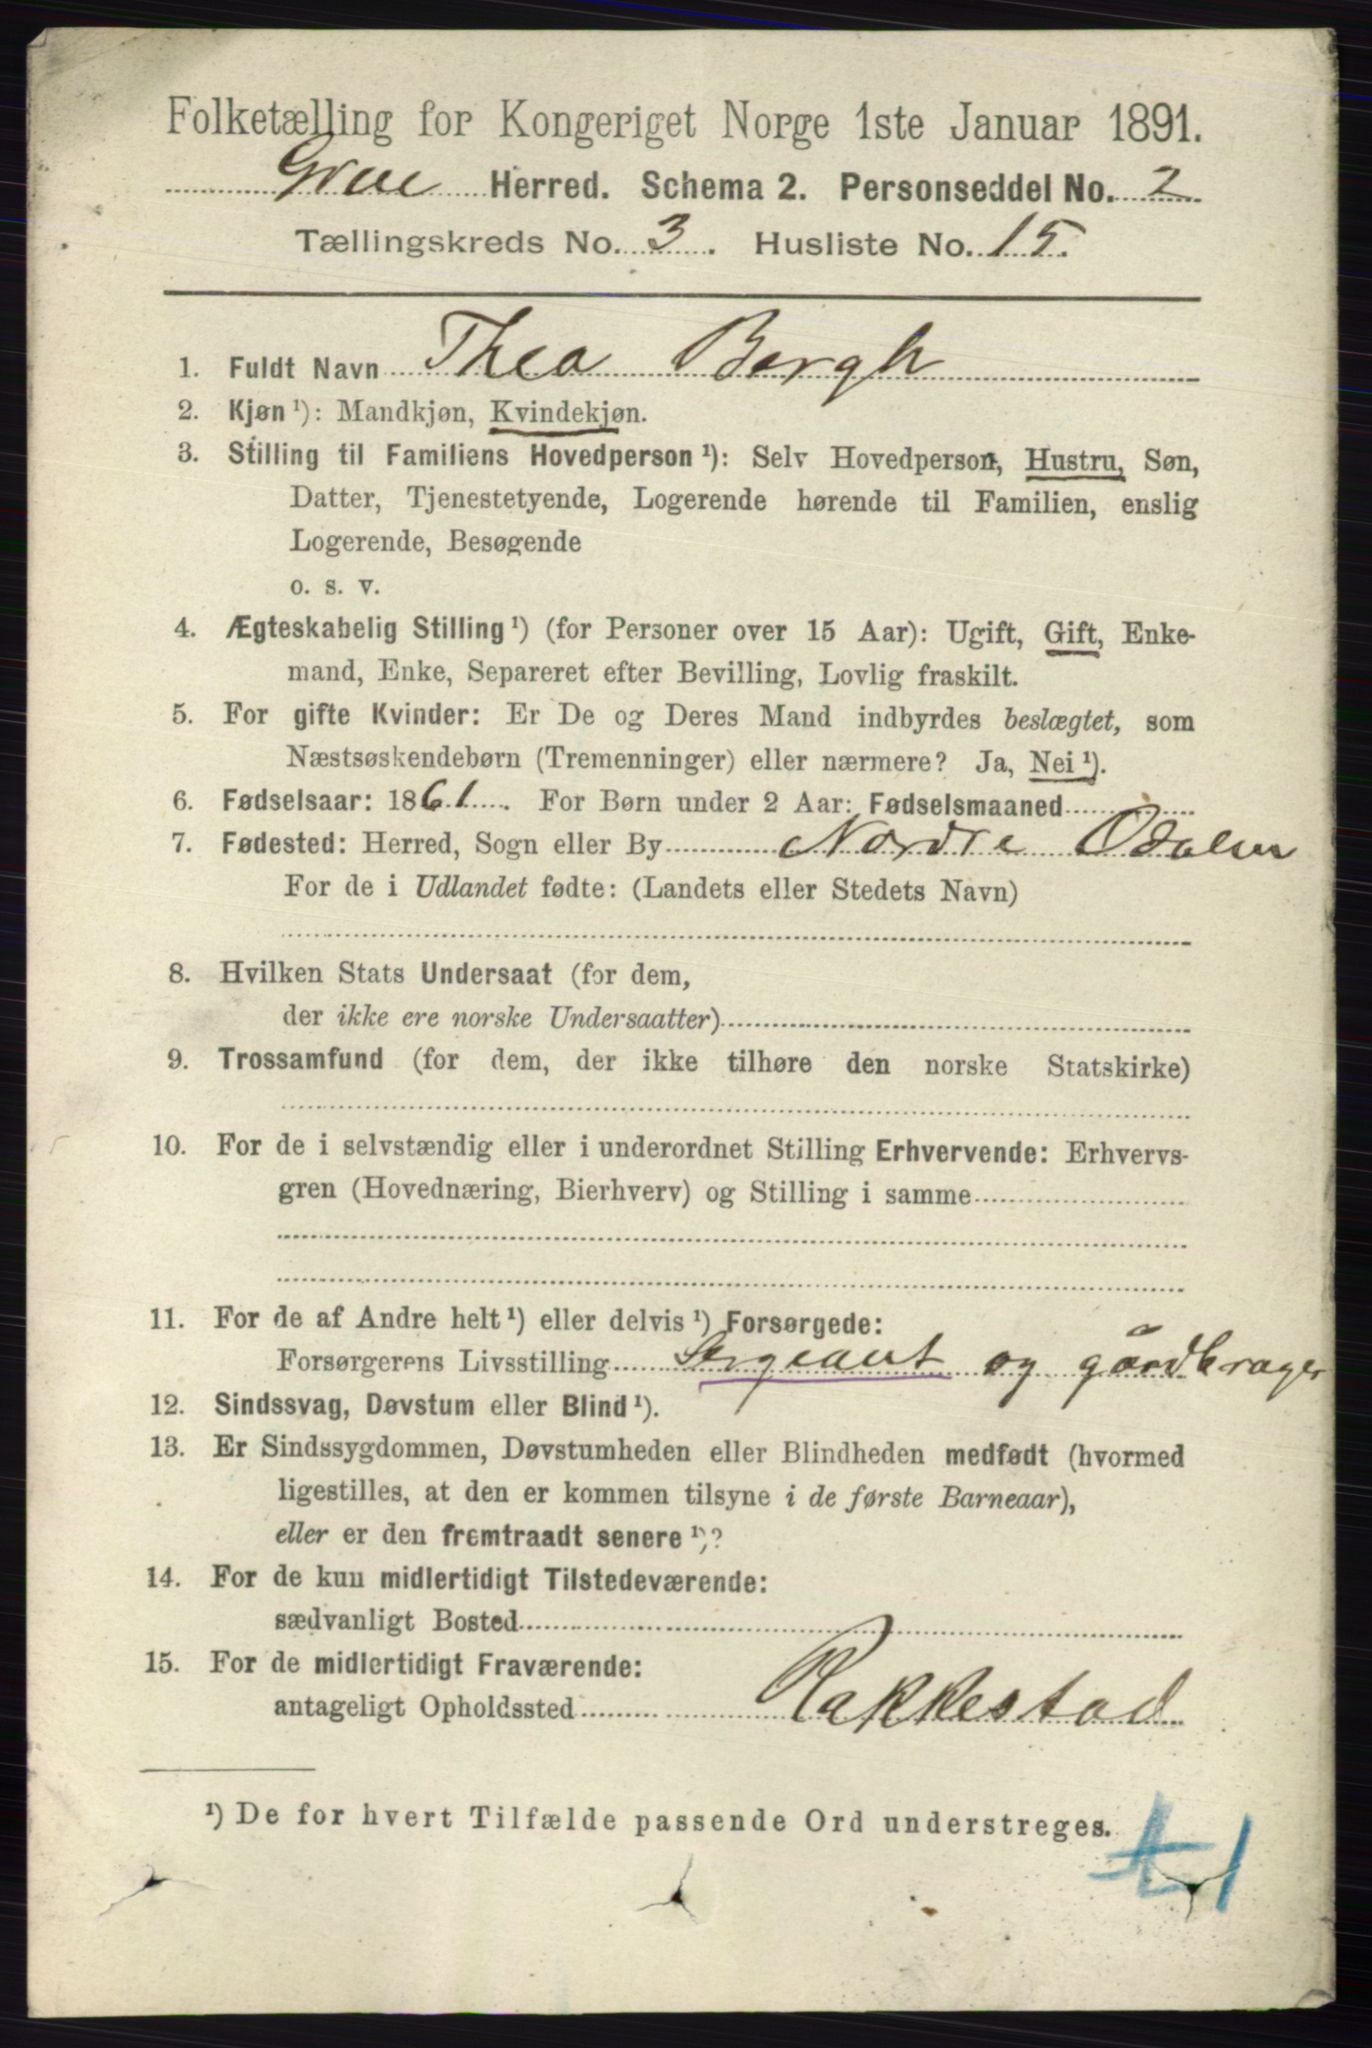 Folketælling for Kongeriget Norge 1ste Januar 1891.
Grue Herred. Schema 2. Personseddel No. 2
Tællingskreds No. 3. Husliste No. 15.
1. Fuldt Navn Thea Bergh
2. Kjøn ¹): Mandkjøn, Kvindekjøn.
3. Stilling til Familiens Hovedperson ¹): Selv Hovedperson, Hustru, Søn,
Datter, Tjenestetyende, Logerende hørende til Familien, enslig
Logerende, Besøgende
o. s. v.
4. Ægteskabelig Stilling ¹) (for Personer over 15 Aar): Ugift, Gift, Enke-
mand, Enke, Separeret efter Bevilling, Lovlig fraskilt.
5. For gifte Kvinder: Er De og Deres Mand indbyrdes beslægtet, som
Næstsøskendebørn (Tremenninger) eller nærmere? Ja, Nei ¹).
6. Fødselsaar: 1861. For Børn under 2 Aar: Fødselsmaaned
7. Fødested: Herred, Sogn eller By Nordre Odalen
For de i Udlandet fødte: (Landets eller Stedets Navn)
8. Hvilken Stats Undersaat (for dem,
der ikke ere norske Undersaatter)
9. Trossamfund (for dem, der ikke tilhøre den norske Statskirke)
10. For de i selvstændig eller i underordnet Stilling Erhvervende: Erhvervs-
gren (Hovednæring, Bierhverv) og Stilling i samme
11. For de af Andre helt ¹) eller delvis ¹) Forsørgede:
Forsørgerens Livsstilling Sergeant og gårdbruger
12. Sindssvag, Døvstum eller Blind ¹).
13. Er Sindssygdommen, Døvstumheden eller Blindheden medfødt (hvormed
ligestilles, at den er kommen tilsyne i de første Barneaar),
eller er den fremtraadt senere ¹)?
14. For de kun midlertidigt Tilstedeværende:
sædvanligt Bosted
15. For de midlertidigt Fraværende:
antageligt Opholdssted Rakkestad
¹) De for hvert Tilfælde passende Ord understreges.